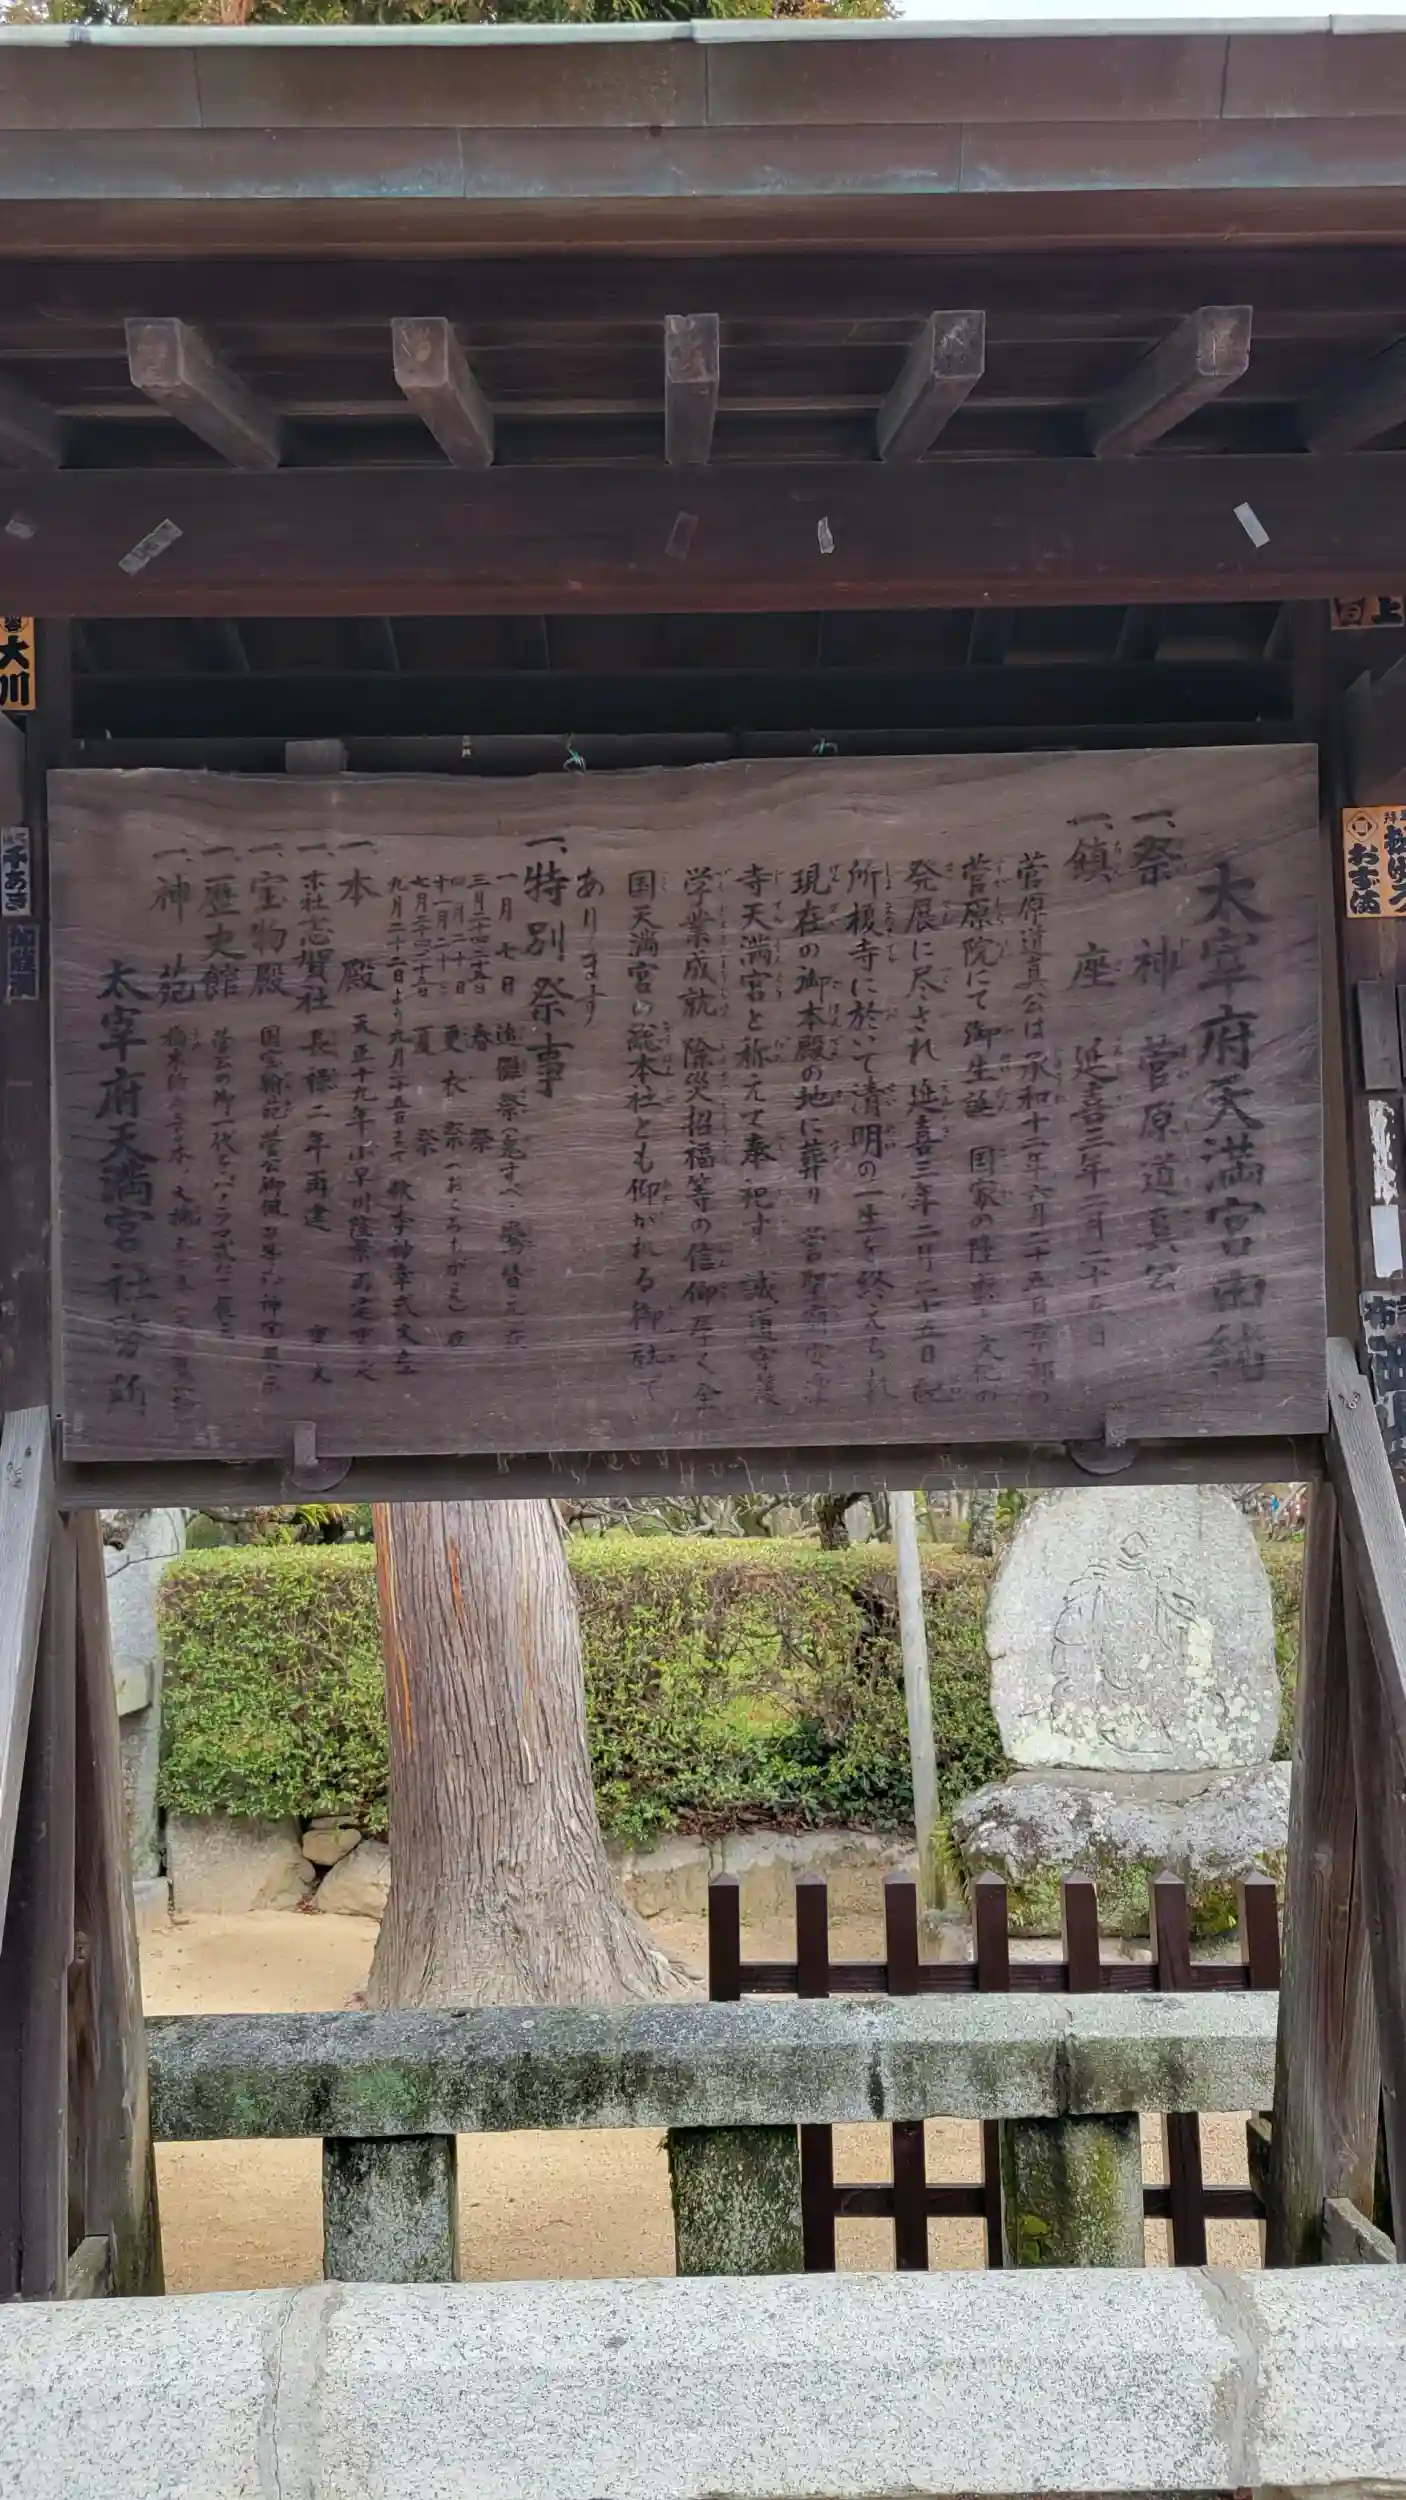 太宰府天満宮由緒
一、祭神 菅原道真公
一、鎮座 延喜三年二月二十五日
菅原道真公は承和十二年六月二十五日京都の
菅原院にて御生誕 国家の隆 と文化の
発展に尽され 延喜三年二月二十五日配
所榎寺に於いて清明の一生を終えられ
現在の御本殿の地に葬り 菅聖廟安楽
寺天満宮と称えて奉祀す 誠道守護
学業成就 除災招福等の信仰厚く全
国天満宮の総本社とも仰がれる御社で
あります
一、特別祭事
一月 七日 追儺祭(鬼すべ・鷽替え)
三月二十四 二十五日 春 祭
四月二十日
十一月二十日 更衣祭(おころもがえ)
七月二十四 二十五日 夏 祭
九月二十二日より九月二十五日まで 秋季神幸式大祭
一、本殿 天正十九年小早川隆景 再建 重文
一、末社志賀社 長禄二年再建 重文
一、宝物殿 国宝翰苑 菅公御佩
一、歴史館 菅公の御一代をパノラマ式
一、神苑
太宰府天満宮社務所
大川
千あき
加藤
松
おず満
上
布